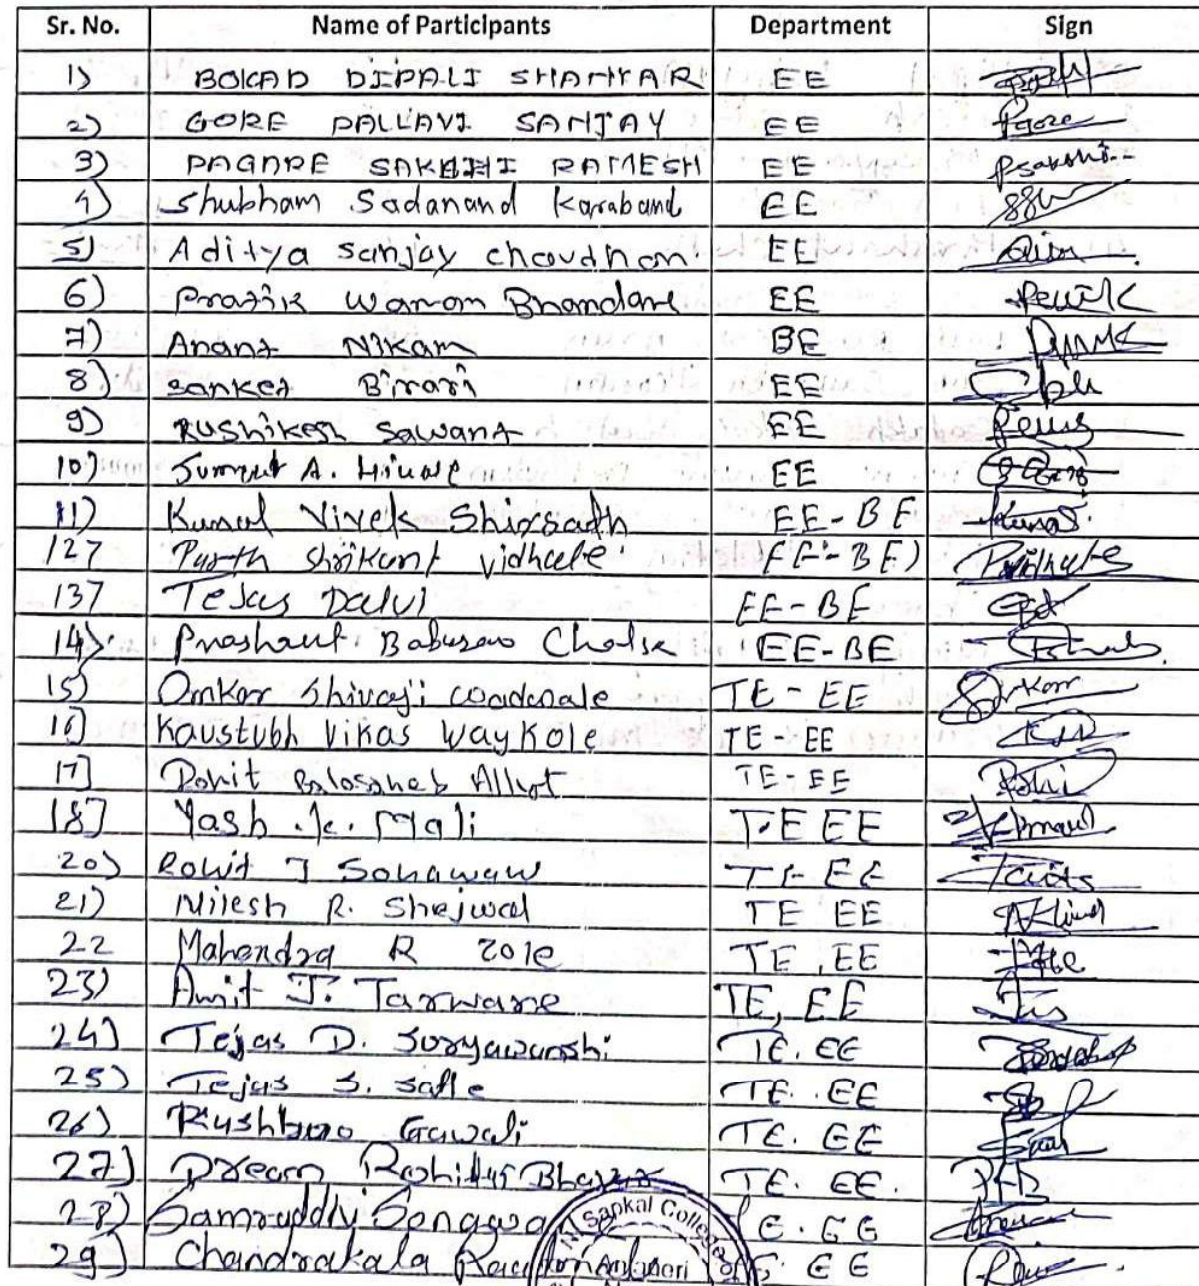 Sr. No. Name of Participants Department Sign
1) BOKAD DIPALI SHANKAR EE
2) GORE PALLAVI SANJAY EE Pgore
3) PAGARE SAKSHI RAMESH EE Psakshi
4) Shubham Sadanand Karaband EE
5) Aditya Sanjay Choudhari EE
6) Pratik Waman Bhandare EE
7) Anant Nikam BE
8) Sanket Birari EE
9) Rushikesh Sawant EE
10) Sumeet A. Hiwale EE
11) Kunal Vivek Shirsath EE-BE Kunal
127 Parth Shrikant vidhate EE-BE)
137 Tejas Dalvi EE-BE
14) Prashant Baburao EE-BE
15) Omkar Shivaji TE-EE Omkar
16] Kaustubh Vikas Waykole TE-EE
17] Rohit Balasaheb TE-EE Rohi
18] Yash .K. Mali T.E EE
20) Rohit J Sonawane TE-EE
21) Nilesh R. Shejwal TE EE
22 Mahendra R Zole TE, EE
23) Amit J. Tarware TE, EE
24) Tejas D. Suryawanshi TE. EE
25) Tejas S. TE. EE
26) Gawali TE. EE
27) Rohidas TE. EE.
28) E. EE
29) Chandrakala EE
Sapkal College of